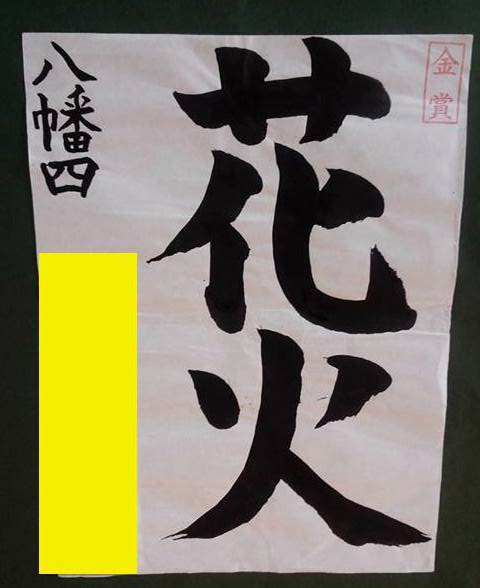 金賞
花火
八幡四